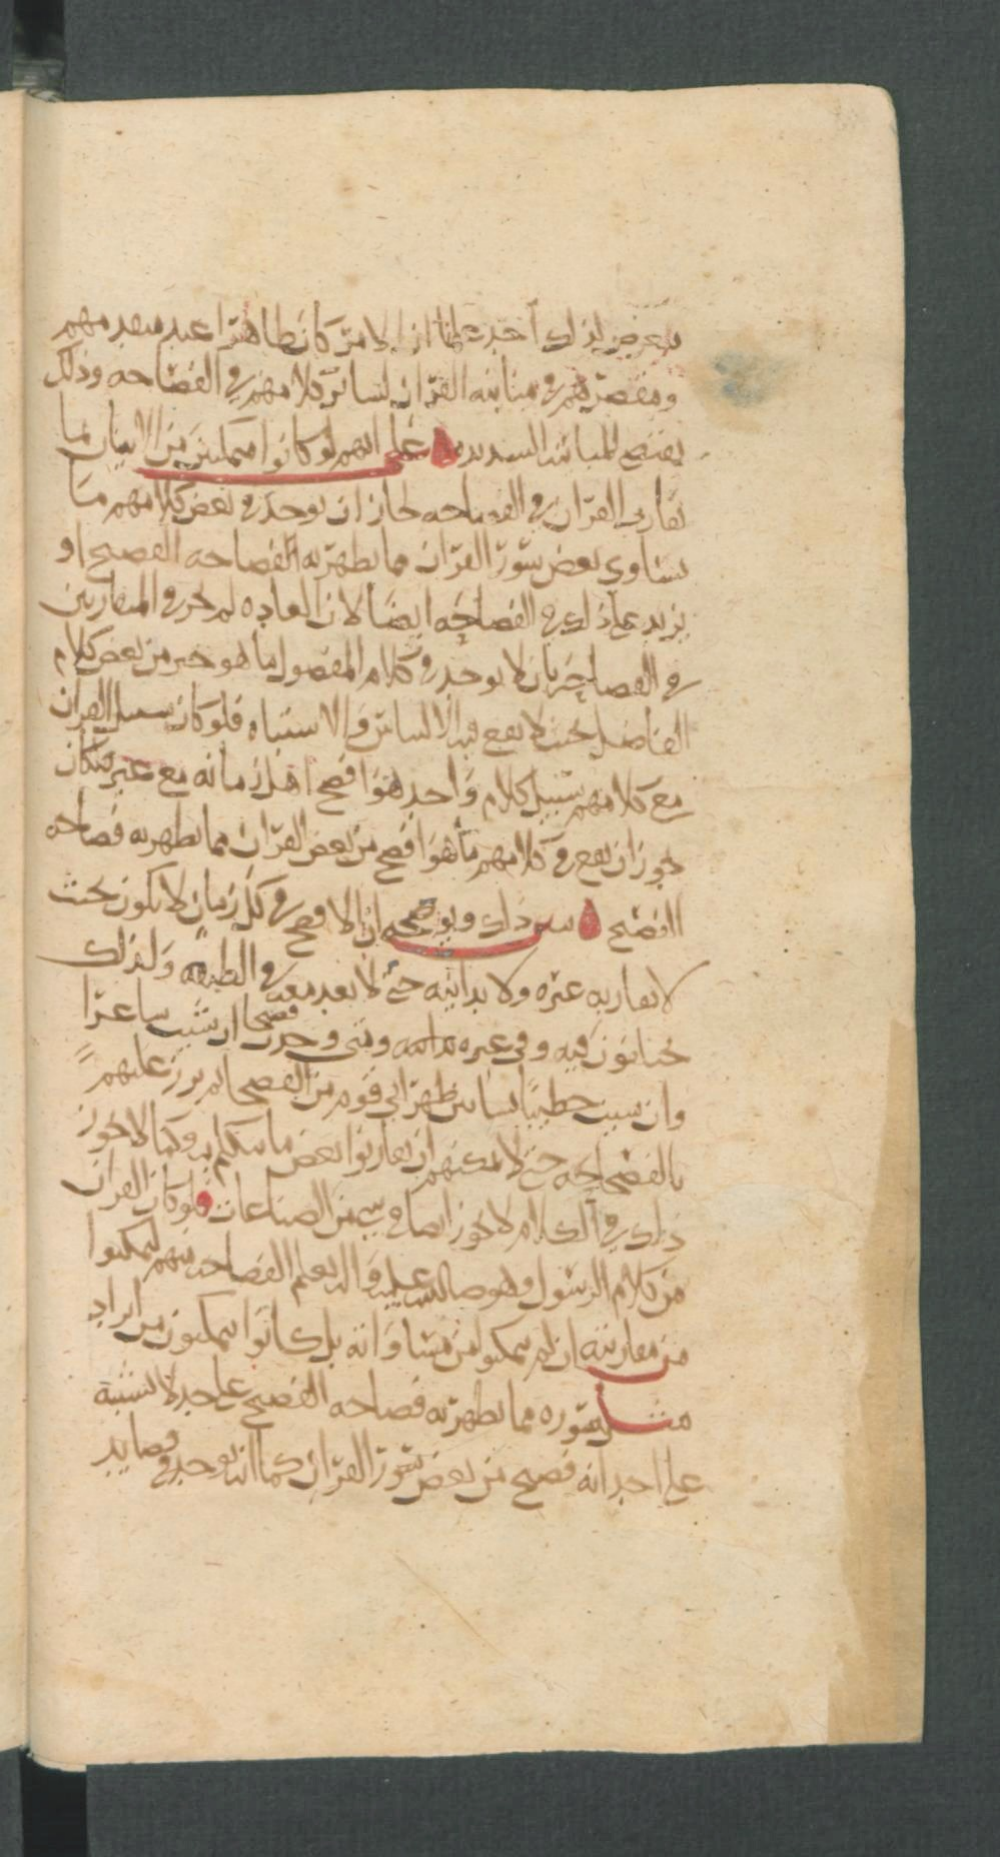 يتعرض لذلك أحد علمنا ان الامر كان ظاهرا عند متقدمهم
ومقصرهم في مباينة القران لسائر كلامهم في الفصاحه وذلك
يقتضي المباينه الشديده على انهم لو كانوا متمكنين من الاتيان بما
يقارب القران في الفصاحه لجاز ان يوجد في بعض كلامهم ما
يساوي بعض سور القران مما يظهر به الفصاحه الفصيح او
يزيد على ذلك في الفصاحه ايضا لان العاده لم تجر في المتقاربين
في الفصاحه بان لا يوجد في كلام المفضول ما هو خير من بعض كلام
الفاضل بحيث لا يقع فيه الالباس والاشتباه فلو كان سبيل القران
مع كلامهم سبيل كلام واحد هو افصح اهل زمانه مع غيره لكان
يجوز ان يقع في كلامهم ما هو افصح من بعض القران مما يظهر به فصاحه
الفصيح يبين ذلك ويوضحه ان الافصح في كل زمان لا يكون بحيث
لا يقاربه غيره ولا يدانيه حتى لا يعد معه في الطبقه ولذلك
يختلفون فيه وفي غيره ومتى وجدت فصيحا ان شئت شاعرا
وان شئت خطيبا بانسان ظهر في قوم من الفصحا لم يبرز عليهم
بالفصاحه حتى لا يمكنهم ان يقاربوا بعض ما يتكلم به وكما لا يجوز
ذلك في الكلام لا يجوز ايضا في شي من الصناعات فلو كان القران
من كلام الرسول وهو صلى الله عليه واله يعلم الفصاحه منهم لتمكنوا
من مقاربته ان لم يتمكنوا من مساواته بل كانوا يتمكنون من ايراد
مثل سوره مما يظهر به فصاحه الفصيح على حد لا يشتبه
على احد انه فصيح من بعض سور القران كما انا نوجد في قصايد